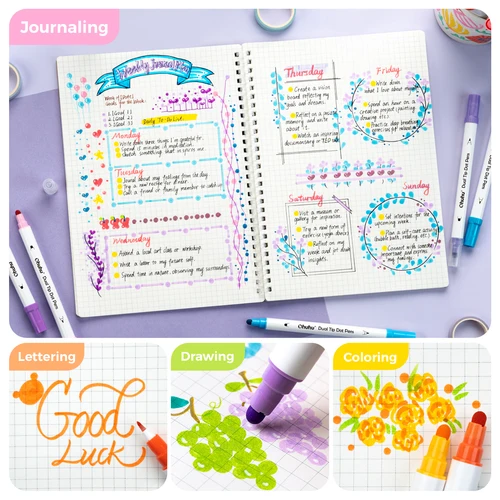 Journaling
Weekly Journal Idea
Monday
Write down three things I'm grateful for.
Tuesday
Journal about my feelings from the day.
Try a new recipe for dinner.
Call a friend or family member to catch up.
Wednesday
Attend a local art class or workshop.
Write a letter to my future self.
Spend time in nature, observing my surroundings.
Thursday
Create a vision
board reflecting my
goals and dreams.
Reflect on a
Friday
Write down
what I love about myself
Spend an hour on a
creative project (painting,
drawing, etc).
Practice deep breathing
Saturday
Visit a museum or
gallery for inspiration.
Try a new form of
exercise (yoga, dance).
Reflect on my
week and jot down
insights.
Sunday
Set intentions for the
upcoming week.
Plan a self-care activity
(bubble bath, reading, etc).
Connect with someone
important and express
my
Ohuhu
Ohuhu
Ohuhu Dual Tip Dot Pen
Lettering
Good
Luck
Drawing
Coloring